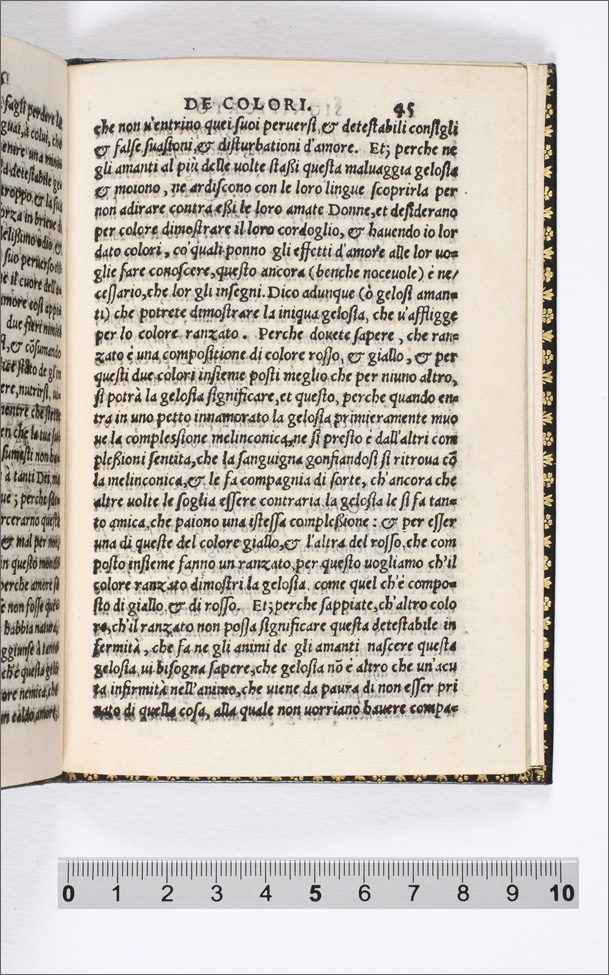 DE COLORI. 45
che non u'entrino quei suoi peruersi, & detestabili consigli
& false suasioni, & disturbationi d'amore. Et; perche ne
gli amanti al più delle volte staßi questa maluaggia gelosia
& moiono, ne ardiscono con le loro lingue scoprirla per
non adirare contra eßi le loro amate Donne, et desiderano
per colore dimostrare il loro cordoglio, & hauendo io lor
dato colori, co'quali ponno gli effetti d'amore alle lor uo=
glie fare conoscere, questo ancora (benche noceuole) è ne/
cessario, che lor gli insegni. Dico adunque (ò gelosi aman=
ti) che potrete dimostrare la iniqua gelosia, che u'affligge
per lo colore ranzato. Perche douete sapere, che ran=
zato è una compositione di colore rosso, & giallo, & per
questi due colori insieme posti meglio che per niuno altro,
si potrà la gelosia significare, et questo, perche quando en=
tra in uno petto innamorato la gelosia primieramente muo
ue la complessione melinconica, ne si presto è dall'altri com
pleßioni sentita, che la sanguigna gonfiandosi si ritroua cō
la melinconica, & le fa compagnia di sorte, ch'ancora che
altre uolte le soglia essere contraria la gelosia le si fa tan=
to amica, che paiono una istessa compleßione: & per esser
una di queste del colore giallo, & l'altra del rosso, che com
posto insieme fanno un ranzato, per questo uogliamo ch'il
colore ranzato dimostri la gelosia, come quel ch'è compo=
sto di giallo, & di rosso. Et; perche sappiate, ch'altro colo
re, ch'il ranzato non possa significare questa detestabile in
fermità, che fa ne gli animi de gli amanti nascere questa
gelosia, ui bisogna sapere, che gelosia nō è altro che un'acu
ta infirmità nell'animo, che viene da paura di non esser pri
uato di quella cosa, alla quale non uorriano hauere compa=
0 1 2 3 4 5 6 7 8 9 10